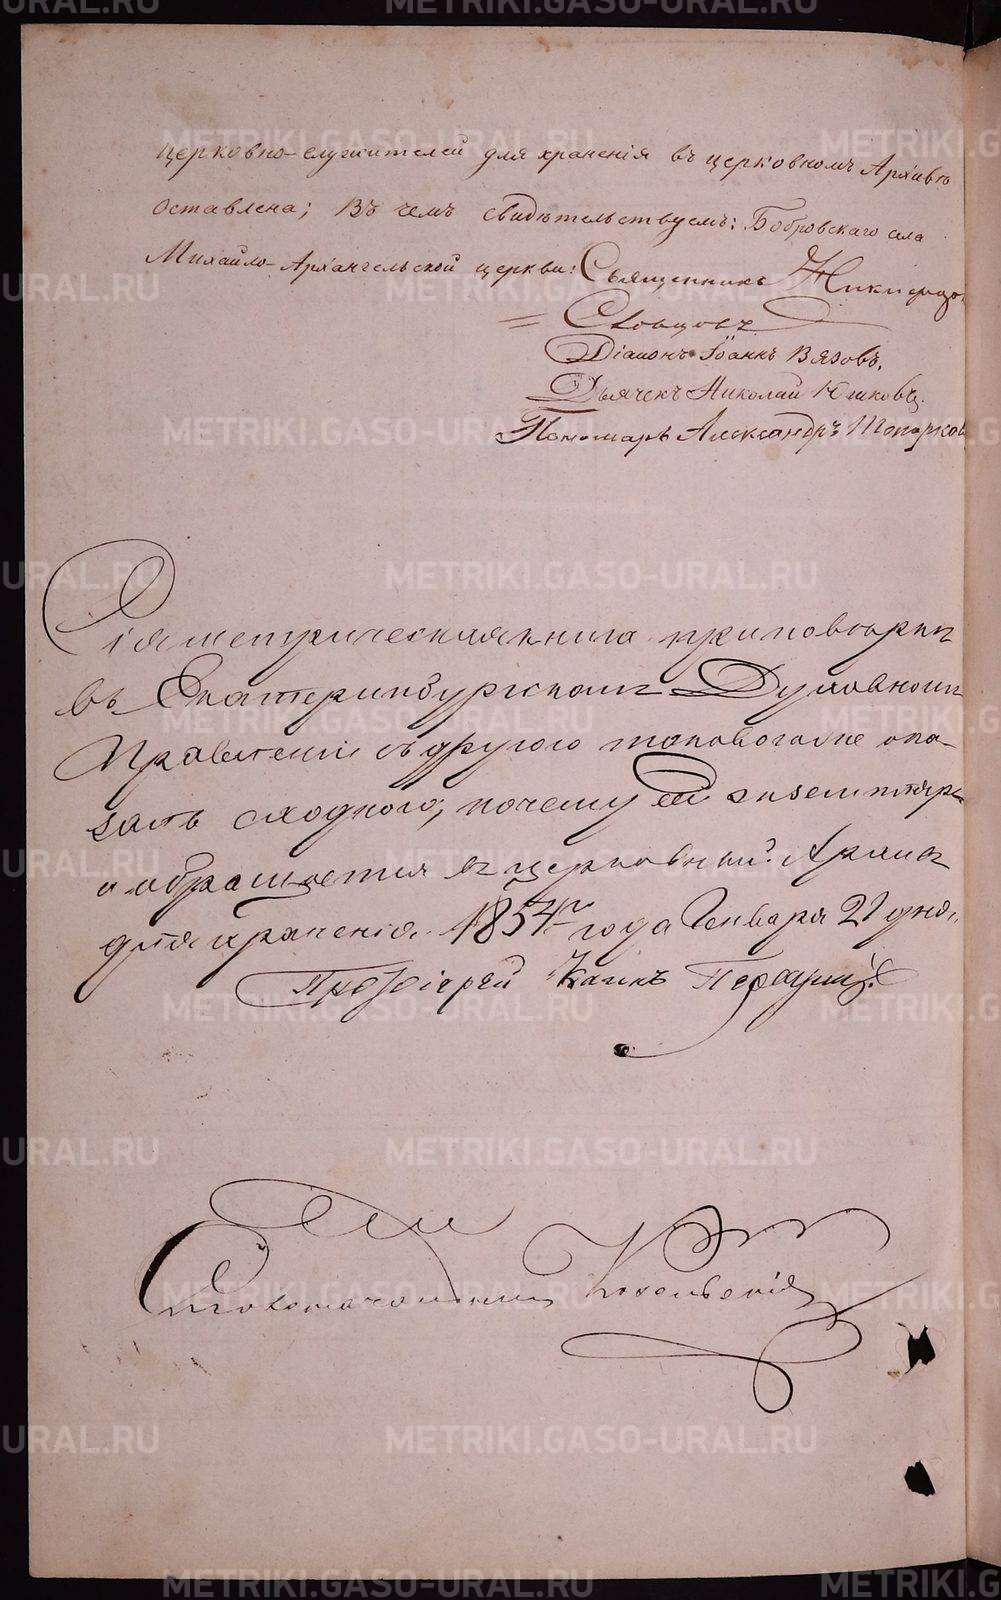 церковно-служителей для храненія въ церковномъ Архивѣ
оставлена; Въ чемъ свидѣтельствуемъ: Бобровскаго села
Михайло-Архангельской церкви: Священникъ Никифоръ
Словцовъ
Діаконъ Іоаннъ Вязовъ.
Дьячекъ Николай Юшковъ.
Пономарь Александръ Топорков
Сія метрическая книга при повѣркѣ
въ Екатеринбургскомъ Духовномъ
Правленіи съ другою таковою
сходною, почему сей экземпляръ
и обращается въ церковный Архивъ
для храненія. 1854 года Января 21 дня.
Протоіерей
Столоначальникъ
METRIKI.GASO-URAL.RU